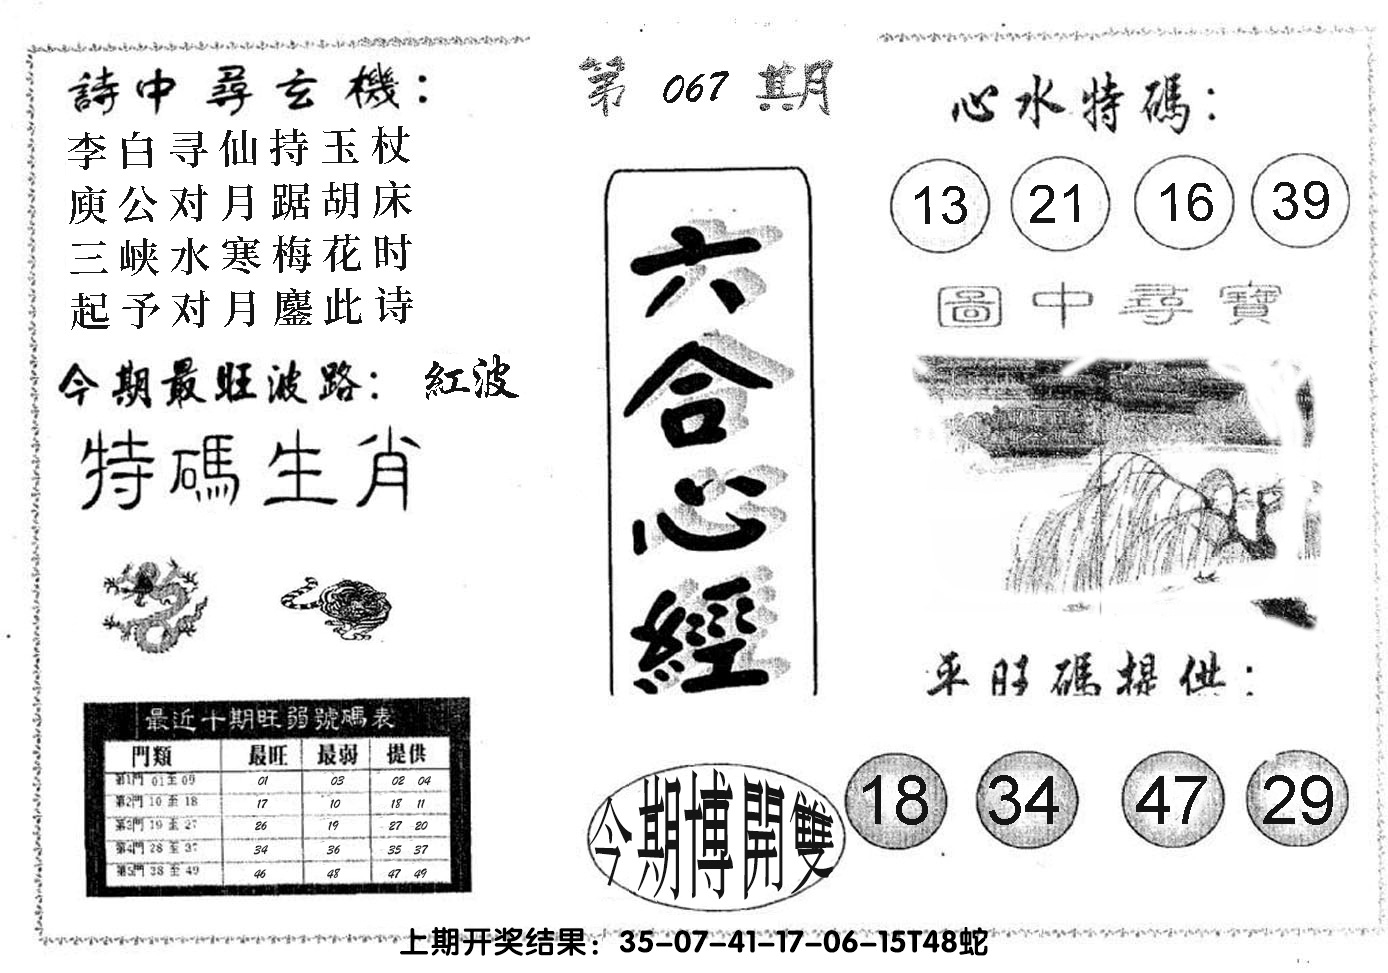 詩中尋玄機：
李白寻仙持玉杖
庾公对月踞胡床
三峡水寒梅花时
起予对月鏖此诗
今期最旺波路： 紅波
特碼生肖
最近十期旺弱號碼表
門類 最旺 最弱 提供
第1門 01至09 01 03 02 04
第2門 10至18 17 10 18 11
第3門 19至27 26 19 27 20
第4門 28至37 34 36 35 37
第5門 38至49 46 48 47 49
第 067 期
六合心經
今期博開雙
心水特碼：
13 21 16 39
圖中尋寶
平旺碼提供：
18 34 47 29
上期开奖结果：35-07-41-17-06-15T48蛇